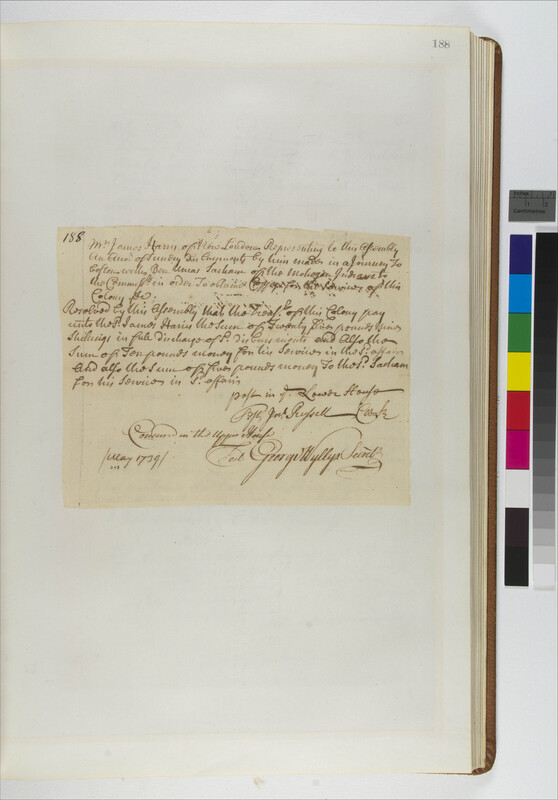 188
188
Mr. James Harris of New London Representing to this Assembly
An Acct. of Sundry Disbursments by him made in a Journey to
Boston with Ben Uncas Sachem of the Mohegan Indians to
the Commissrs. in order To obtain for the Services of this
Colony &c.
Resolved by this Assembly that the Treasr. of this Colony pay
unto the sd. James Harris the Sum of Twenty five pounds nine
Shillings in full Discharge of sd. disbursments and Also the
Sum of Ten pounds money for his Services in the sd. affair
And also the Sum of five pounds money To the sd. Sachem
for his Service in sd. affair
past in ye. Lower House
Test, Jonth. Russell Clerk
Concurrd in the Upper House
Test George Wyllys Secret.
/May 1739/
Inches 1 2
Centimetres